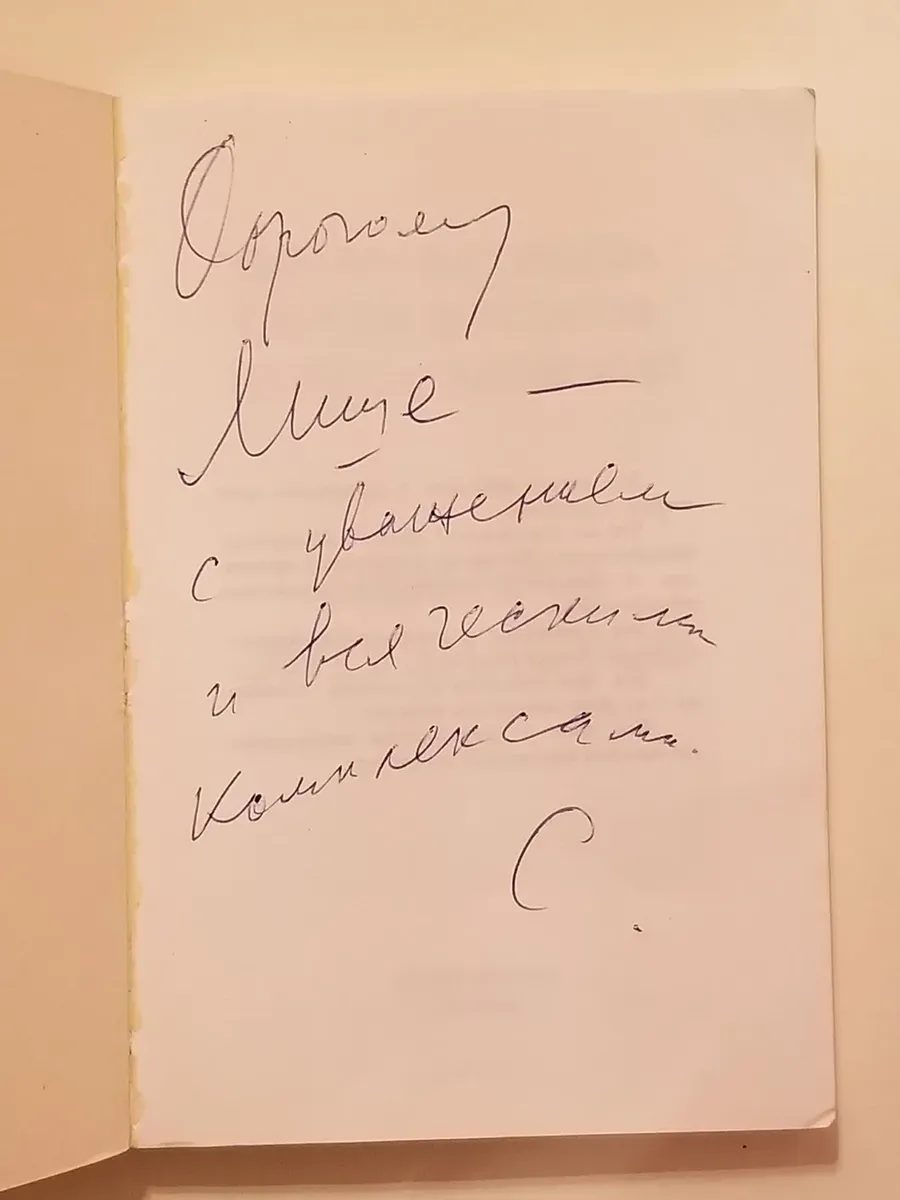 Дорогому
Мише —
с уважением
и всяческими
комплексами.
С.